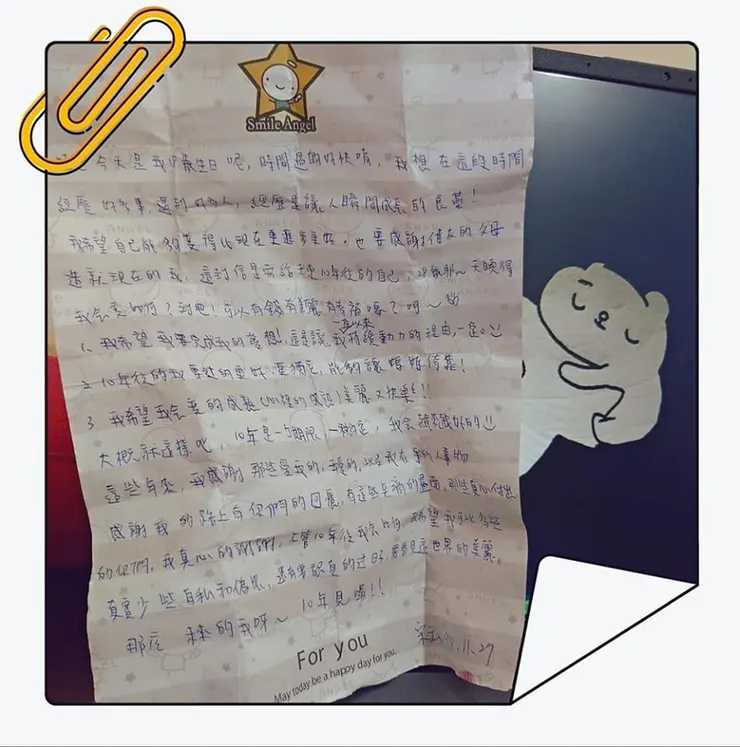 Smile Angel
今天是我 歲生日呢，時間過的好快唷，我想在這段時間
經歷好多事，遇到好多人，經歷是讓人瞬間成長的良藥！
我希望自己能夠變得比現在更進步更好，也要感謝偉大的父母
造就現在的我，這封信是寫給 10年後的自己， 天曉得
我會變如何？對吧！可以有錢有美麗有幸福嗎？呵～
1. 我希望我要完成我的夢想！這是讓我一直以來持續動力的理由，一定。
2. 10年後的我要過的更好更獨立，能夠讓媽媽倚靠！
3. 我希望我會變的成熟（心裡的成熟）美麗又快樂！！
大概就這樣吧，10年是一個期限一個約定，我會越來越好的
這些年來，我感謝那些愛我的，我愛的，以及我在乎的人事物
感謝我的路上有你們的回憶，有這些幸福的畫面，那些真心付出
的你們，我真心的謝謝，不管10年後我會如何，希望我可以多些
真實少些自私和偽裝，還有要認真的過日，要看見這世界的美麗。
那麼 未來的我呀～ 10年見囉！！
99.11.27
For you
May today be a happy day for you.